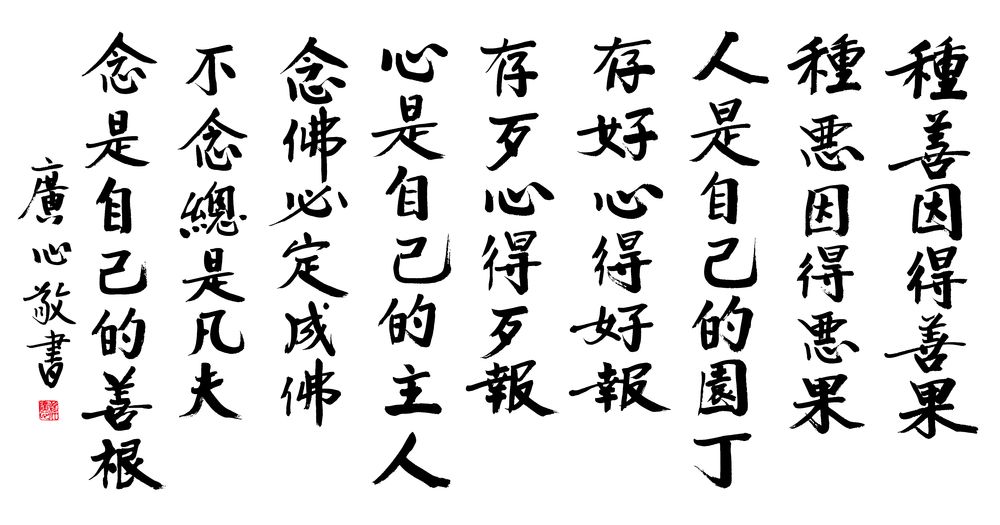 種善因得善果
種悪因得悪果
人是自己的園丁
存好心得好報
存歹心得歹報
心是自己的主人
念佛必定成佛
不念總是凡夫
念是自己的善根
廣心敬書